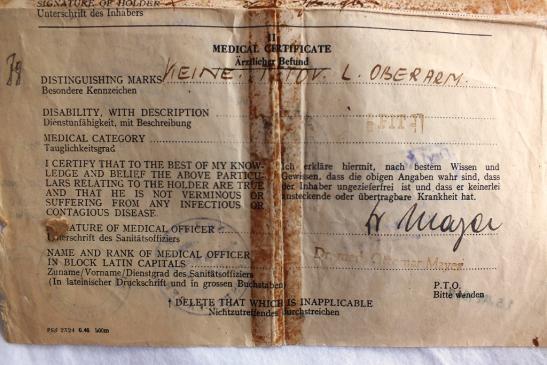 SIGNATURE OF HOLDER
Unterschrift des Inhabers
II
MEDICAL CERTIFICATE
Ärztlicher Befund
DISTINGUISHING MARKS KEINE. L. OBERARM.
Besondere Kennzeichen
DISABILITY, WITH DESCRIPTION
Dienstunfähigkeit, mit Beschreibung
MEDICAL CATEGORY
Tauglichkeitsgrad
I CERTIFY THAT TO THE BEST OF MY KNOW-
LEDGE AND BELIEF THE ABOVE PARTICU-
LARS RELATING TO THE HOLDER ARE TRUE
AND THAT HE IS NOT VERMINOUS OR
SUFFERING FROM ANY INFECTIOUS OR
CONTAGIOUS DISEASE.
Ich erkläre hiermit, nach bestem Wissen und
Gewissen, dass die obigen Angaben wahr sind, dass
der Inhaber ungezieferfrei ist und dass er keinerlei
ansteckende oder übertragbare Krankheit hat.
Dr Mayer
SIGNATURE OF MEDICAL OFFICER
Unterschrift des Sanitätsoffiziers
NAME AND RANK OF MEDICAL OFFICER
IN BLOCK LATIN CAPITALS
Dr. med. Mayer
Zuname/Vorname/Dienstgrad des Sanitätsoffiziers
(In lateinischer Druckschrift und in grossen Buchstaben)
P.T.O.
Bitte wenden
† DELETE THAT WHICH IS INAPPLICABLE
Nichtzutreffendes durchstreichen
PSS 2324 6.46 500m